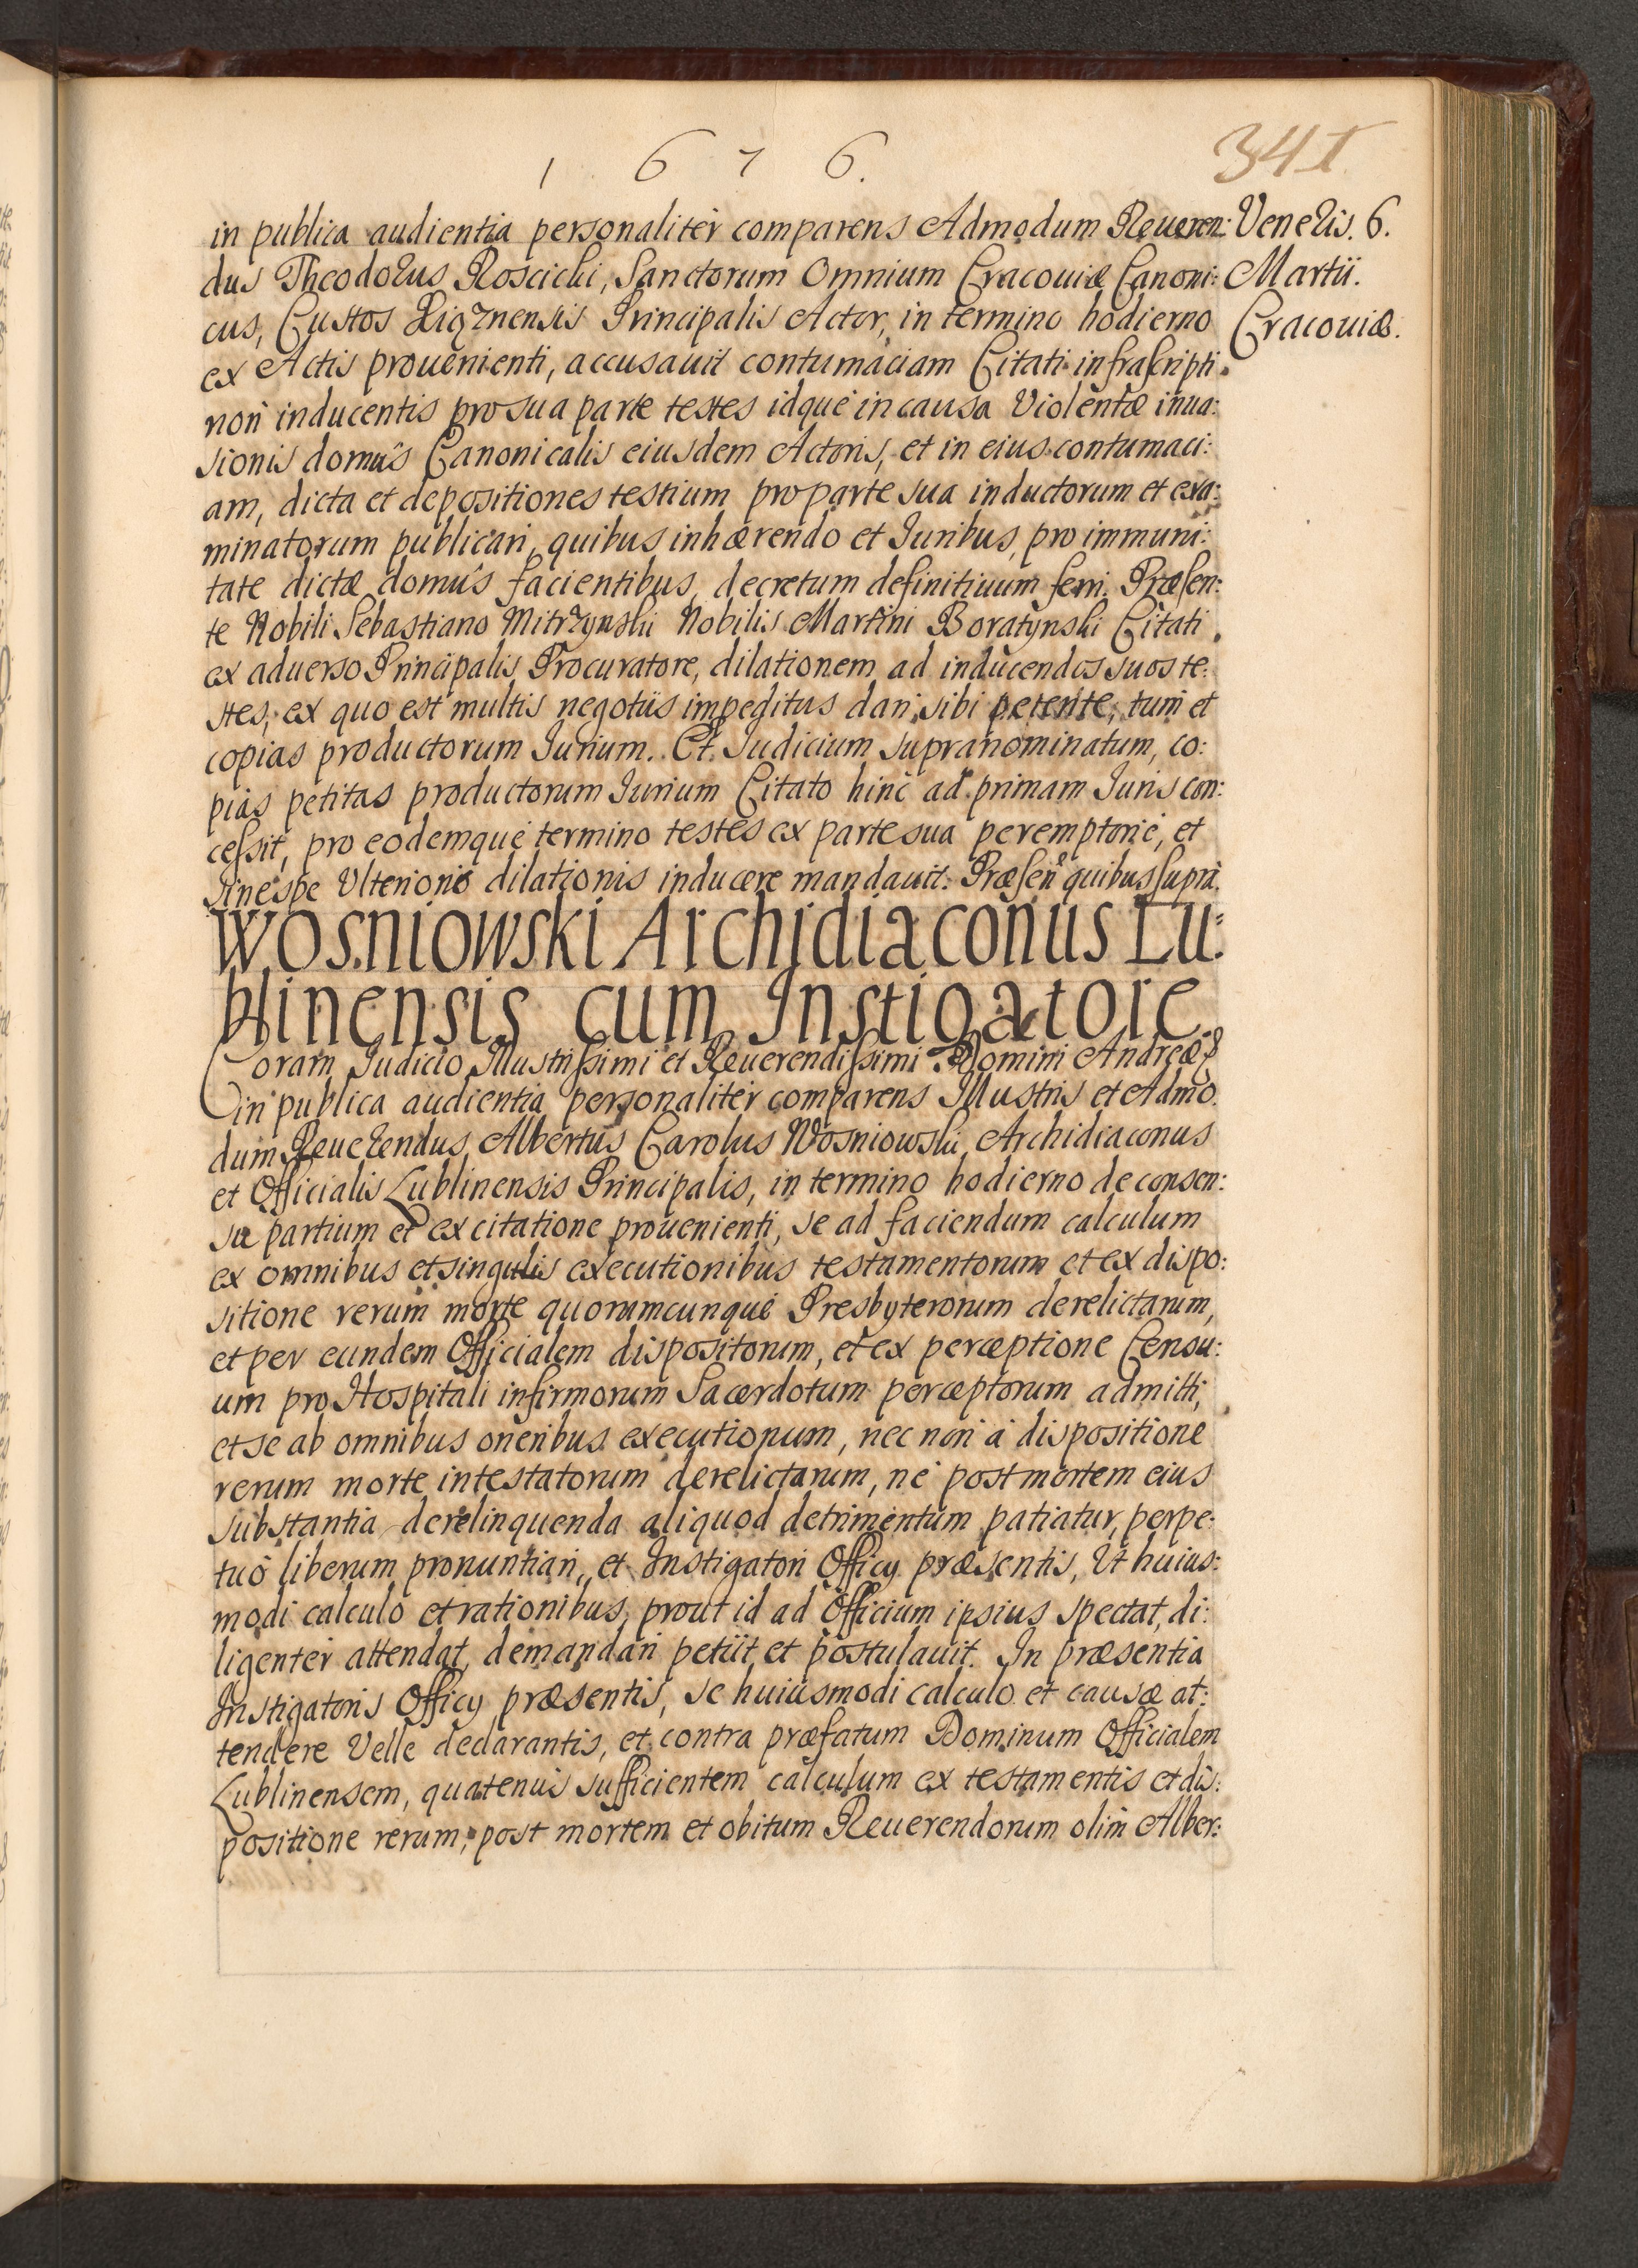 1676.
341
in publica audientia personaliter comparens Admodum Reueren:
dus Theodorus Roscicki, Sanctorum Omnium Cracouiæ Canoni:
cus, Custos Principalis Actor, in termino hodierno
ex Actis prouenienti, accusauit contumaciam Citati infrascripti
non inducentis pro sua parte testes idque in causa Violentæ inua:
sionis domûs Canonicalis eiusdem Actoris, et in eius contumaci:
am, dicta et depositiones testium pro parte sua inductorum et exa:
minatorum publicari, quibus inhærendo et Iuribus, pro immuni:
tate dictæ domûs facientibus, decretum definitiuum ferri. Præsen:
te Nobili Sebastiano Mitrzynski Nobilis Martini Boratynski Citati
ex aduerso Principalis Procuratore, dilationem ad inducendos suos te:
stes, ex quo est multis negotiis impeditus dari sibi petente, tum et
copias productorum Iurium. Et Iudicium supranominatum, co:
pias petitas productorum Iurium Citato hinc ad primam Iuris con:
cessit, pro eodemque termino testes ex parte sua peremptorie, et
sine spe Vlterioris dilationis inducere mandauit. Præsen quibus supra.
Wosniowski Archidiaconus Lu:
blinensis cum Instigatore.
Coram Iudicio Illustrissimi et Reuerendissimi Domini Andreæ
in publica audientia personaliter comparens Illustris et Admo
dum Reuerendus Albertus Carolus Wosniowski Archidiaconus
et Officialis Lublinensis Principalis, in termino hodierno de consen:
su partium et ex citatione prouenienti, se ad faciendum calculum
ex omnibus et singulis executionibus testamentorum et ex dispo:
sitione rerum morte quorumcunque Presbyterorum derelictarum,
et per eundem Officialem dispositorum, et ex perceptione Censu:
um pro Hospitali infirmorum Sacerdotum perceptorum admitti,
et se ab omnibus oneribus executionum, nec non à dispositione
rerum morte intestatorum derelictarum, ne post mortem eius
substantia derelinquenda aliquod detrimentum patiatur, perpe:
tuo liberum pronuntiari, et Instigatori Officy præsentis, Vt huius:
modi calculo et rationibus, prout id ad Officium ipsius spectat, di:
ligenter attendat, demandari petiit et postulauit. In præsentia
Instigatoris Officy præsentis, se huiusmodi calculo et causæ at:
tendere Velle declarantis, et contra præfatum Dominum Officialem
Lublinensem, quatenus sufficientem calculum ex testamentis et dis:
positione rerum, post mortem et obitum Reuerendorum olim Alber:
Veneris. 6.
Martii.
Cracouiæ.